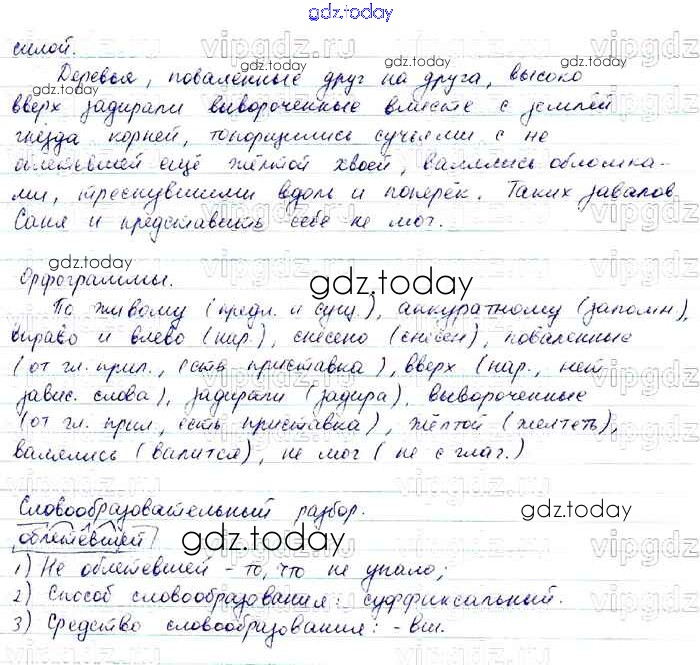 gdz.today
силой.
Деревья, поваленные друг на друга, высоко
вверх задирали вывороченные вместе с землёй
гнёзда корней, топорщились сучьями с не
облетевшей ещё жёлтой хвоей, валялись обломка-
ми, треснувшими вдоль и поперёк. Таких завалов
Саня и представить себе не мог.
gdz.today
Орфограммы.
gdz.today
По живому (предл. и сущ.), аккуратному (запомн),
вправо и влево (нар.), снесено (снесён), поваленные
(от гл. прил., есть приставка), вверх (нар., нет
завис. слова), задирали (задира), вывороченные
(от гл. прил, есть приставка), жёлтой (желтеть),
валялись (валится), не мог (не с глаг.)
gdz.today
Словообразовательный разбор.
облетевшей
gdz.today
1) Не облетевшей - то, что не упало;
2) Способ словообразования: суффиксальный.
3) Средство словообразования: -вш.
gdz.today
vipgdz.ru